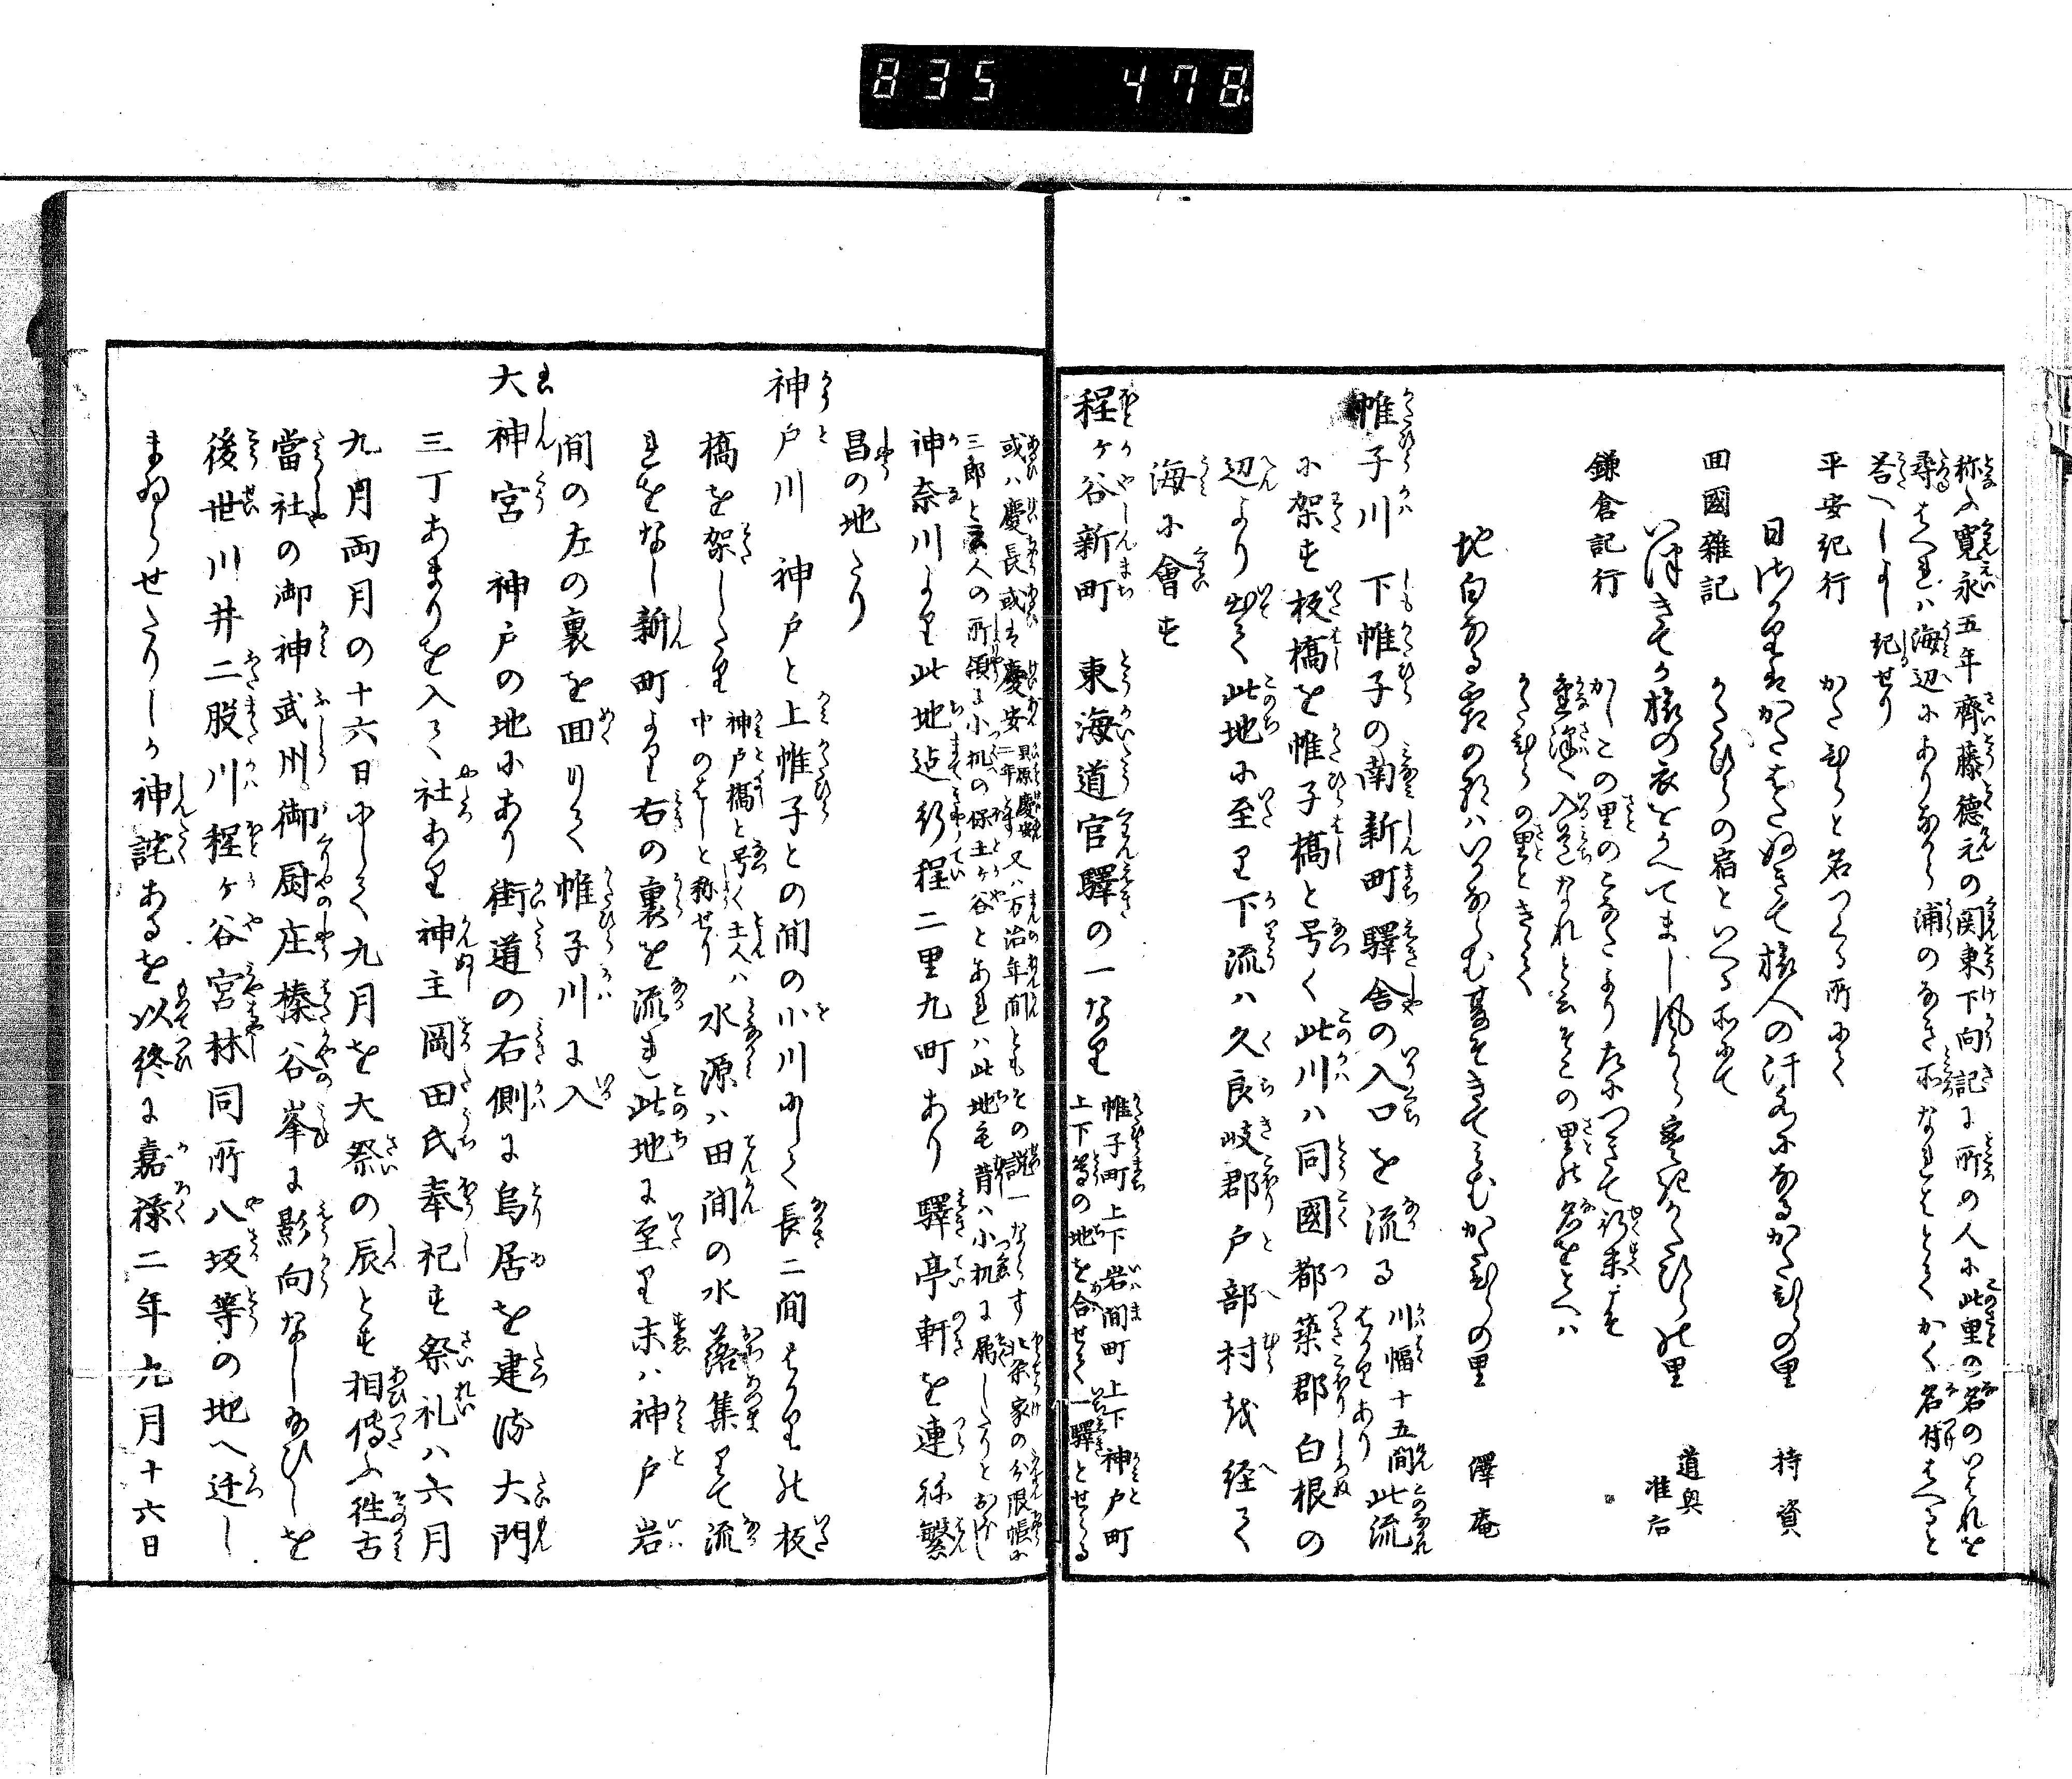 835 478
称ふ寛永五年齋藤徳元の関東下向記に所の人に此里の名のいはれを
尋ねはへれハ海辺にありなから浦のなき所なれはとてかく名付はへると
答へしよし記せり
平安紀行 かたひらと名つくる所にて
日さかりハかたはたぬきて旅人の汗水になるかたひらの里 持資
回國雜記 かたひらの宿といへる所にて
いつきてか旅の衣をかへてまし風うら寒きかたひらの里 道興准后
鎌倉記行 かしこの里のこなたより左につきて
金澤へ入道なれと云そこの里の名をとへハ
かたひらの里ときゝて
澤庵
帷子川 下帷子の南新町驛舎の入口を流る 川幅十五間はかりあり 此流
に架す板橋を帷子橋と号く此川ハ同國都築郡白根の
辺より出て此地に至り下流ハ久良岐郡戸部村を経て
海に會す
程ヶ谷新町 東海道官驛の一なり 帷子町上下岩間町上下神戸町
上下等の地を合せて一驛とせる
或ハ慶長或は慶安二年又ハ万治年間ともその説一ならす北条家の分限帳に
三郎と云人の所領に小机の保土ヶ谷とあれハ此地も昔ハ小机に属したりとおほし
神奈川より此地迄行程二里九町あり驛亭軒を連ね繁
昌の地たり
神戸川 神戸と上帷子との間の小川にして長二間はかりの板
橋を架したり 神戸橋と号く土人ハ中のはしと称せり 水源ハ田間の水落集りて流
れをなし新町より右の裏を流れ此地に至り末ハ神戸岩
間の左の裏を回りて帷子川に入
大神宮 神戸の地にあり街道の右側に鳥居を建つ大門
三丁あまりを入て社あり神主岡田氏奉祀す祭礼ハ六月
九月両月の十六日にして九月を大祭の辰とす相傳ふ往古
當社の御神武州御厨庄榛谷峯に影向なし給ひしを
後世川井二股川程ヶ谷宮林同所八坂等の地へ迁し
まゐらせたりしか神託あるを以終に嘉禄二年九月十六日